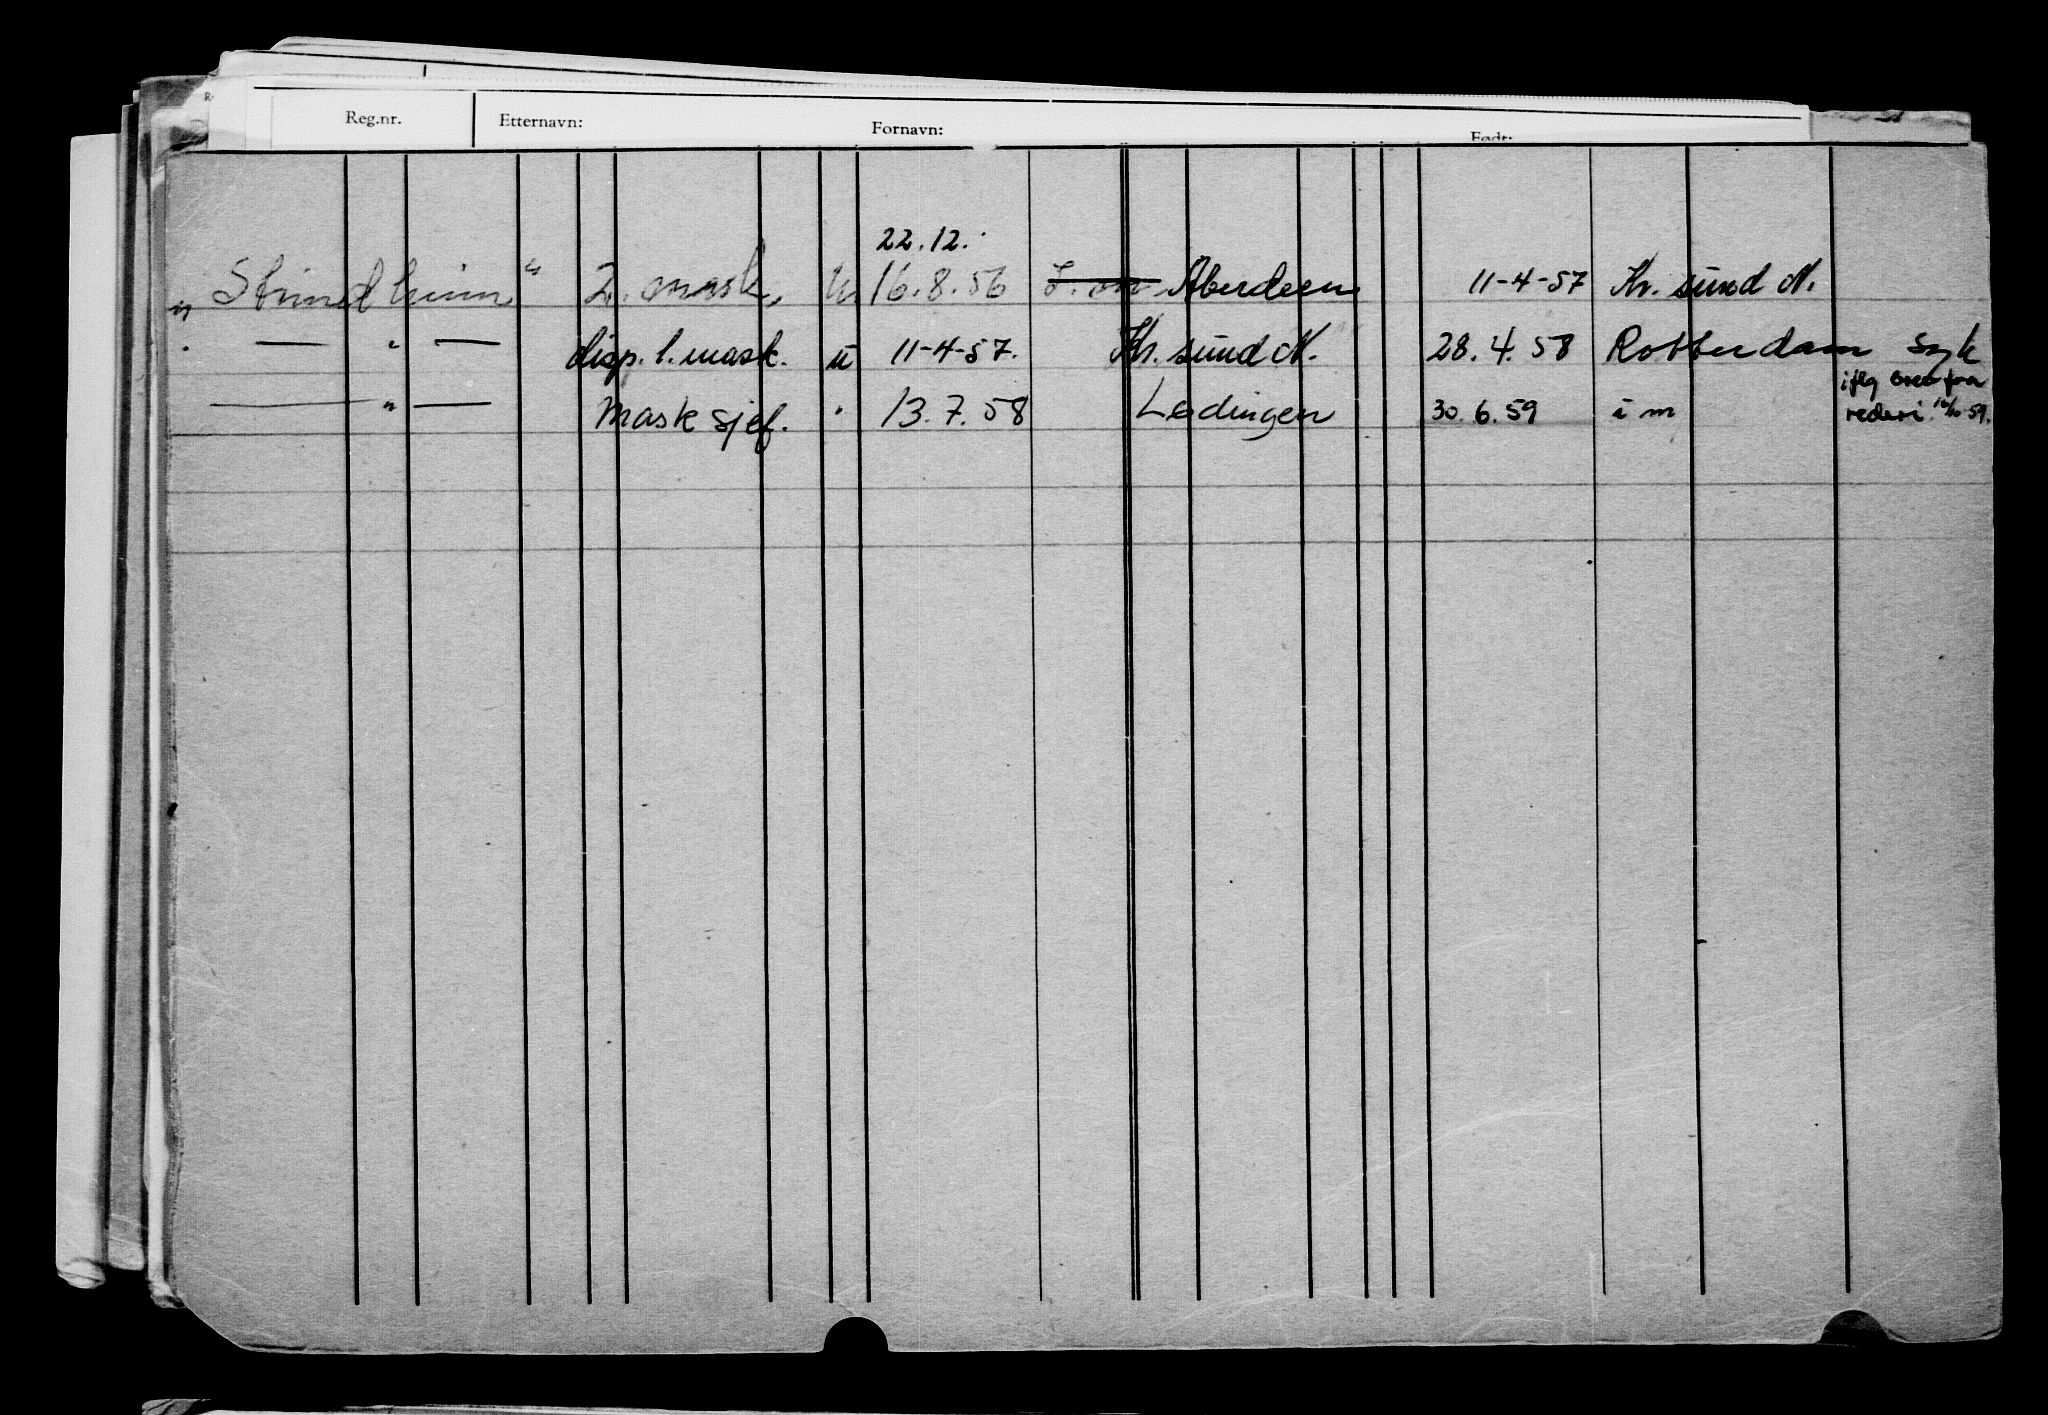 Reg.nr. Etternavn: Fornavn: Født:
22.12.
" Strindheim " 2. mask. u. 16.8.56 Aberdeen 11-4-57 Kr. sund N.
" — " — disp. 1. mask. u 11-4-57. Kr. sund N. 28.4.58 Rotterdam Syk
— " — Mask sjef. " 13.7.58 Lødingen 30.6.59 i m
iflg brev fra
rederi 16/10 59.